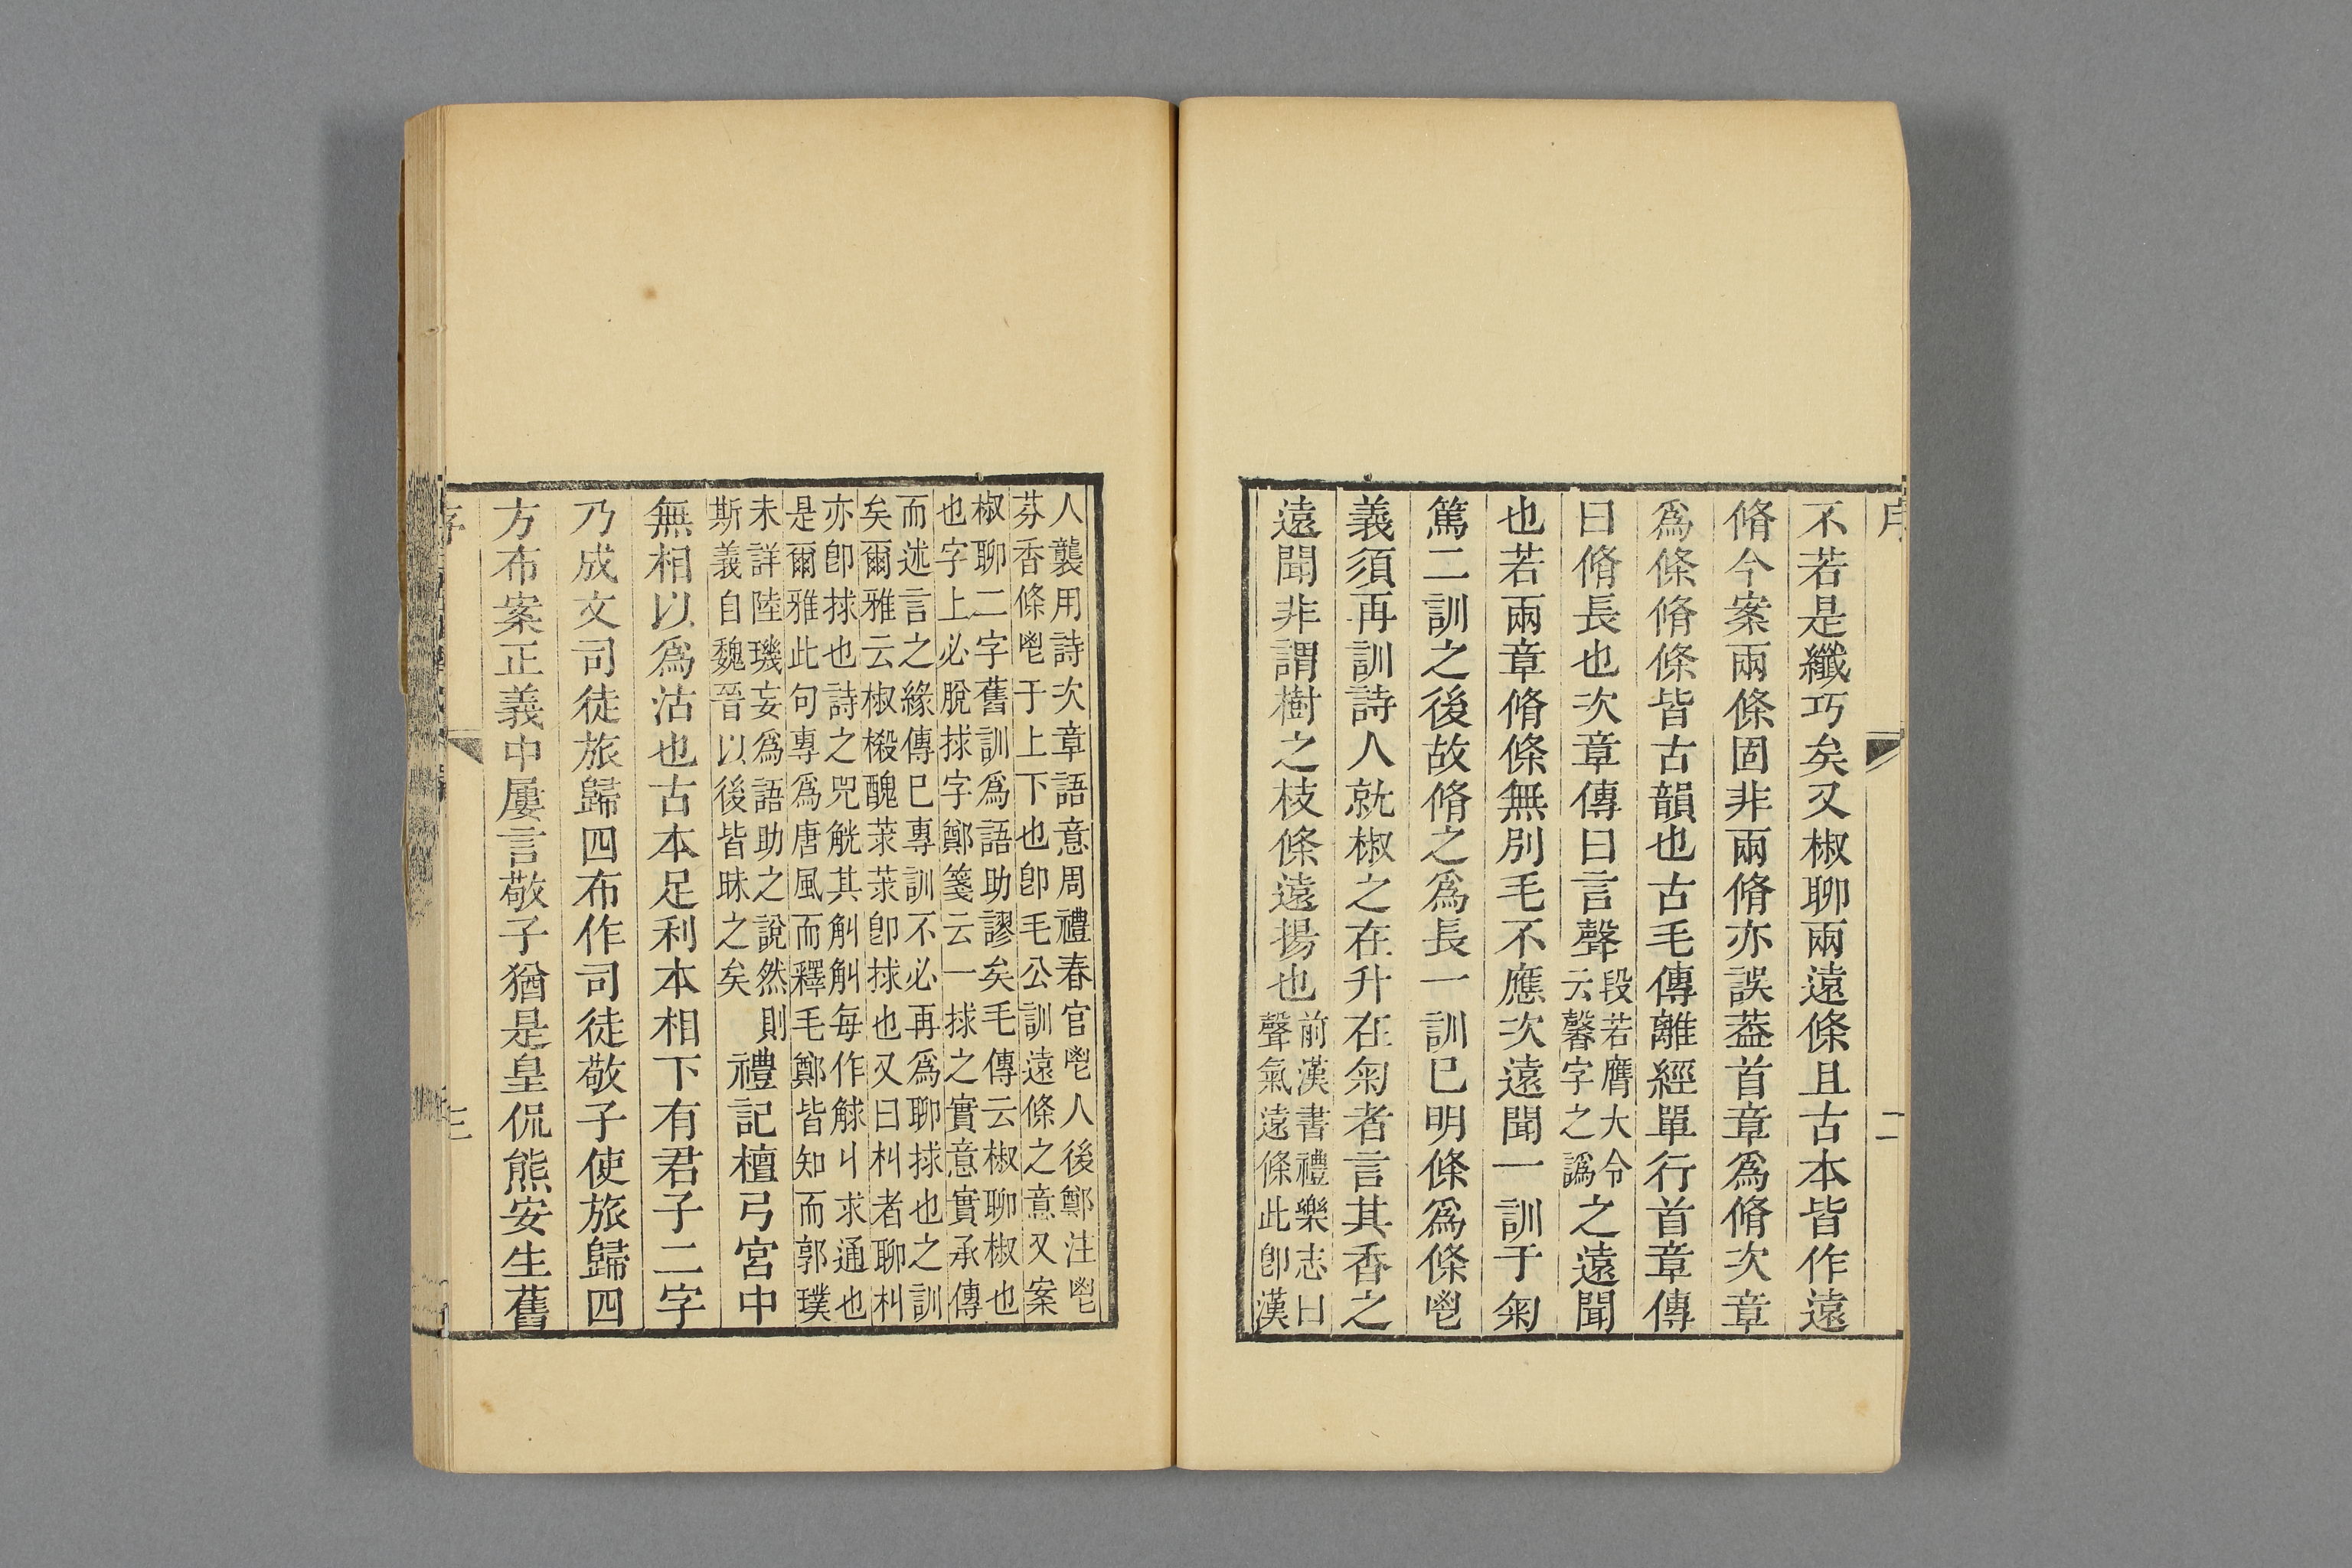 序
二
不若是纖巧矣又椒聊兩遠條且古本皆作遠
脩今案兩條固非兩脩亦誤葢首章爲脩次章
爲條脩條皆古韻也古毛傳離經單行首章傳
曰脩長也次章傳曰言聲
段若膺大令
云馨字之譌
之遠聞
也若兩章脩條無別毛不應次遠聞一訓于匊
篤二訓之後故脩之爲長一訓巳明條爲條鬯
義須再訓詩人就椒之在升在匊者言其香之
遠聞非謂樹之枝條遠揚也
前漢書禮樂志曰
聲氣遠條此卽漢
人襲用詩次章語意周禮春官鬯人後鄭注鬯
芬香條鬯于上下也卽毛公訓遠條之意又案
椒聊二字舊訓爲語助謬矣毛傳云椒聊椒也
也字上必脫捄字鄭箋云一捄之實意實承傳
而述言之緣傳巳專訓不必再爲聊捄也之訓
矣爾雅云椒樧醜莍莍卽捄也又曰朻者聊朻
亦卽捄也詩之兕觥其觓觓每作觩丩求通也
是爾雅此句專爲唐風而釋毛鄭皆知而郭璞
未詳陸璣妄爲語助之說然則
斯義自魏晉以後皆昧之矣
禮記檀弓宮中
無相以爲沽也古本足利本相下有君子二字
乃成文司徒旅歸四布作司徒敬子使旅歸四
方布案正義中屢言敬子猶是皇侃熊安生舊
序
三